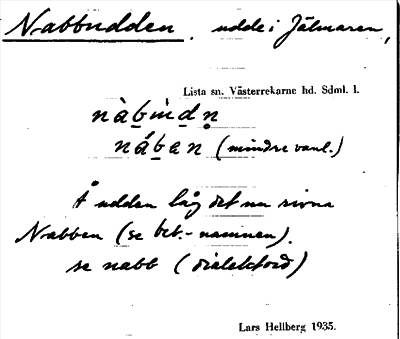 Nabbudden, udde i Jälmaren,
Lista sn. Västerrekarne hd. Sdml. l.
nàb̲ùd̲n̥
náb̲en (mindre vanl.)
Å udden låg det nu rivna
Nabben (se bet.-namnen).
se nabb (dialektord)
Lars Hellberg 1935.